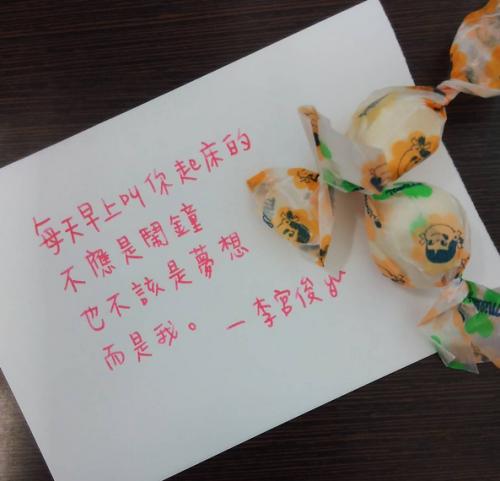 每天早上叫你起床的
不應是鬧鐘
也不該是夢想
而是我。 —李宮俊